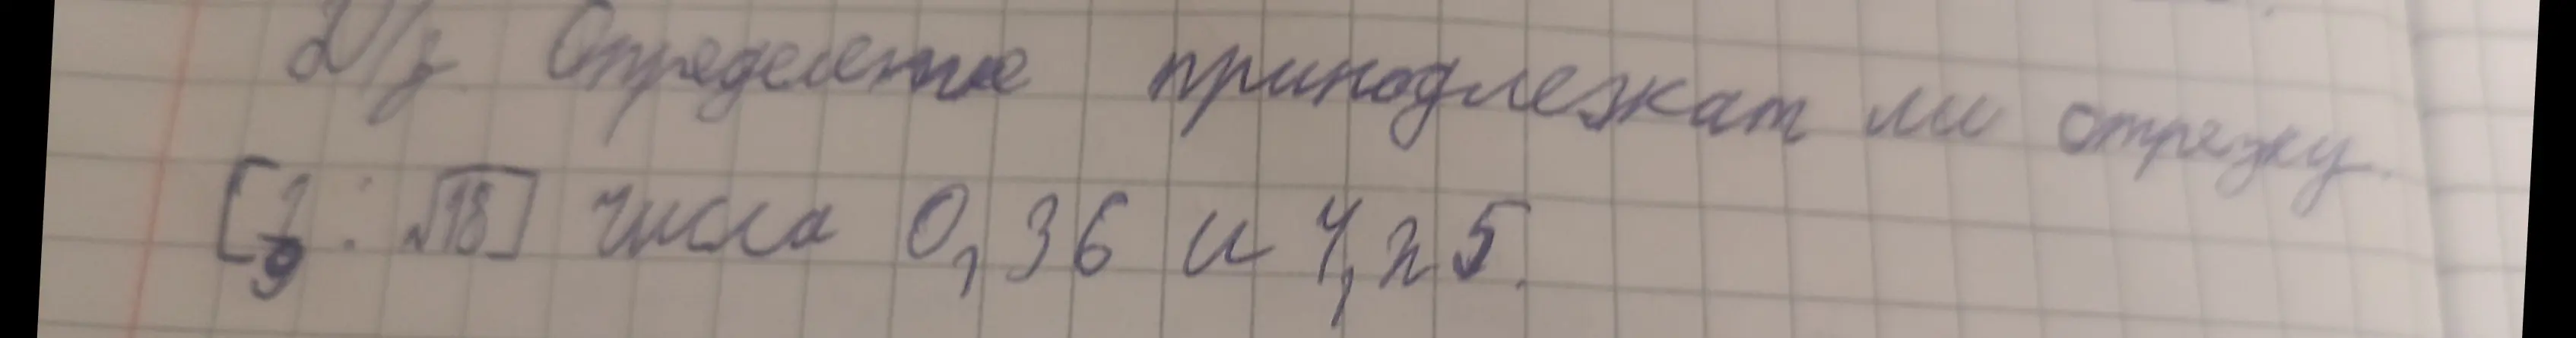 Д/з Определение принодлежат ли отрезку.
[1/9 : √18] числа 0,36 и 4,25.